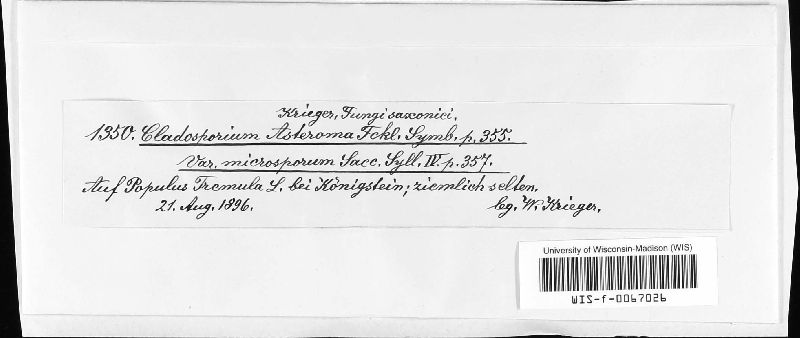 Krieger, Fungi saxonici.
1350. Cladosporium Asteroma Fckl. Symb. p. 355.
Var. microsporum Sacc. Syll. IV. p. 357.
Auf Populus Tremula L. bei Königstein; ziemlich selten.
21. Aug. 1896. leg. W. Krieger.
University of Wisconsin-Madison (WIS)
WIS-f-0067026